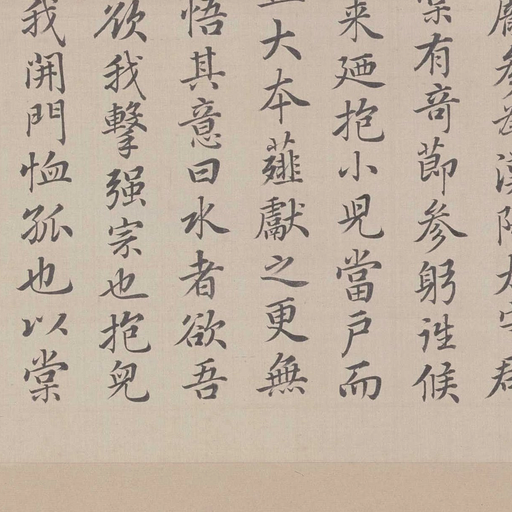 參為漢陽太守郡
棠有奇節參躬詣候
来廼抱小児當戶而
大本薤獻之更無
悟其意曰水者欲吾
欲我擊强宗也抱兒
我開門恤孤也以棠